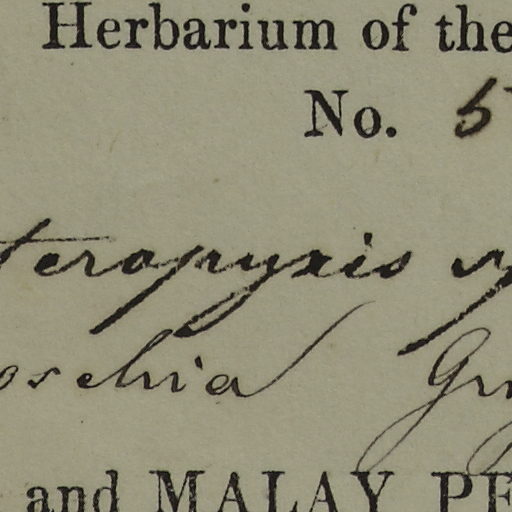 Herbarium of the
No. 5
teropyxis
oschia
and MALAY PE